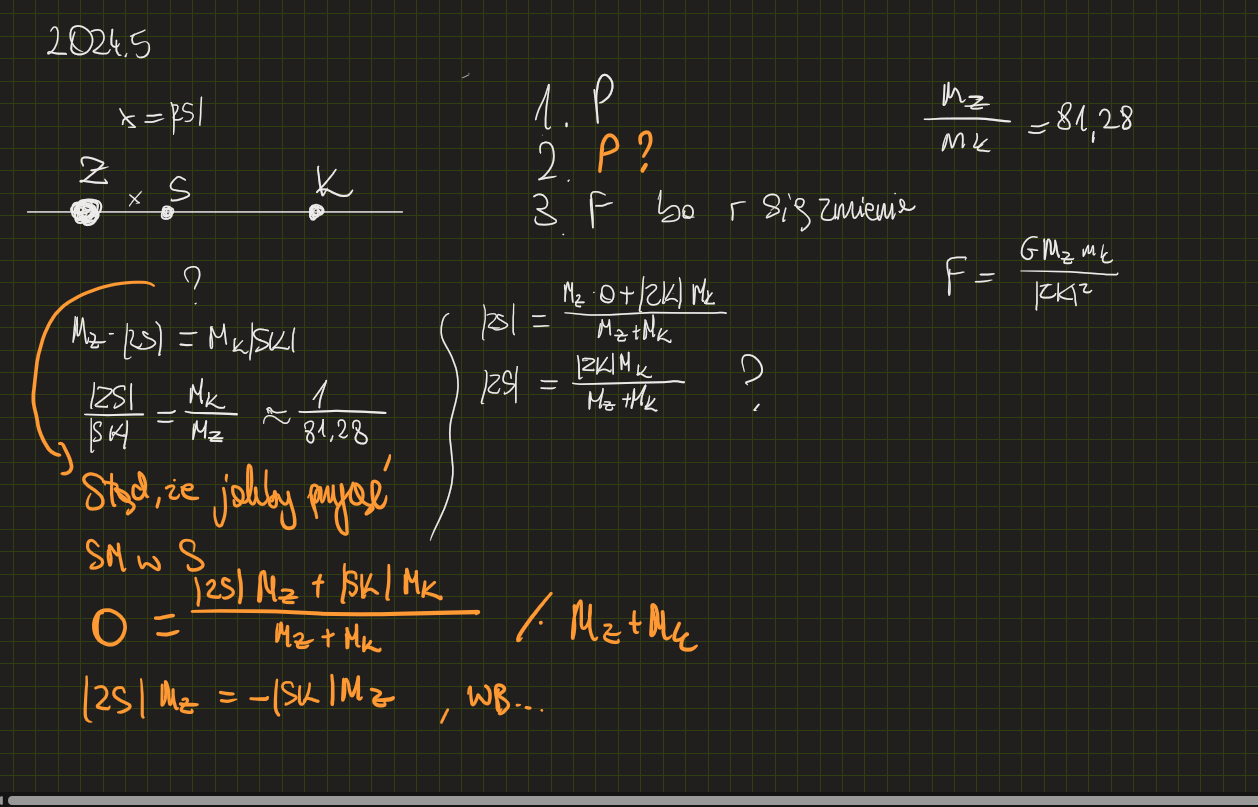 2024.5
x = |ZS|
Z x S K
1. P
2. P?
3. F bo r się zmienia
M_Z / M_K = 81,28
F = G M_Z M_K / |ZK|²
?
M_Z · |ZS| = M_K |SK|
|ZS| / |SK| = M_K / M_Z ≈ 1 / 81,28
|ZS| = M_Z · 0 + |ZK| M_K / M_Z + M_K
|ZS| = |ZK| M_K / M_Z + M_K ?
Stąd, że jakby przyjąć
ŚM w S
0 = |ZS| M_Z + |SK| M_K / M_Z + M_K /· M_Z + M_K
|ZS| M_Z = -|SK| M_Z , WB...